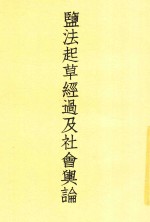 鹽法起草經過及社會輿論